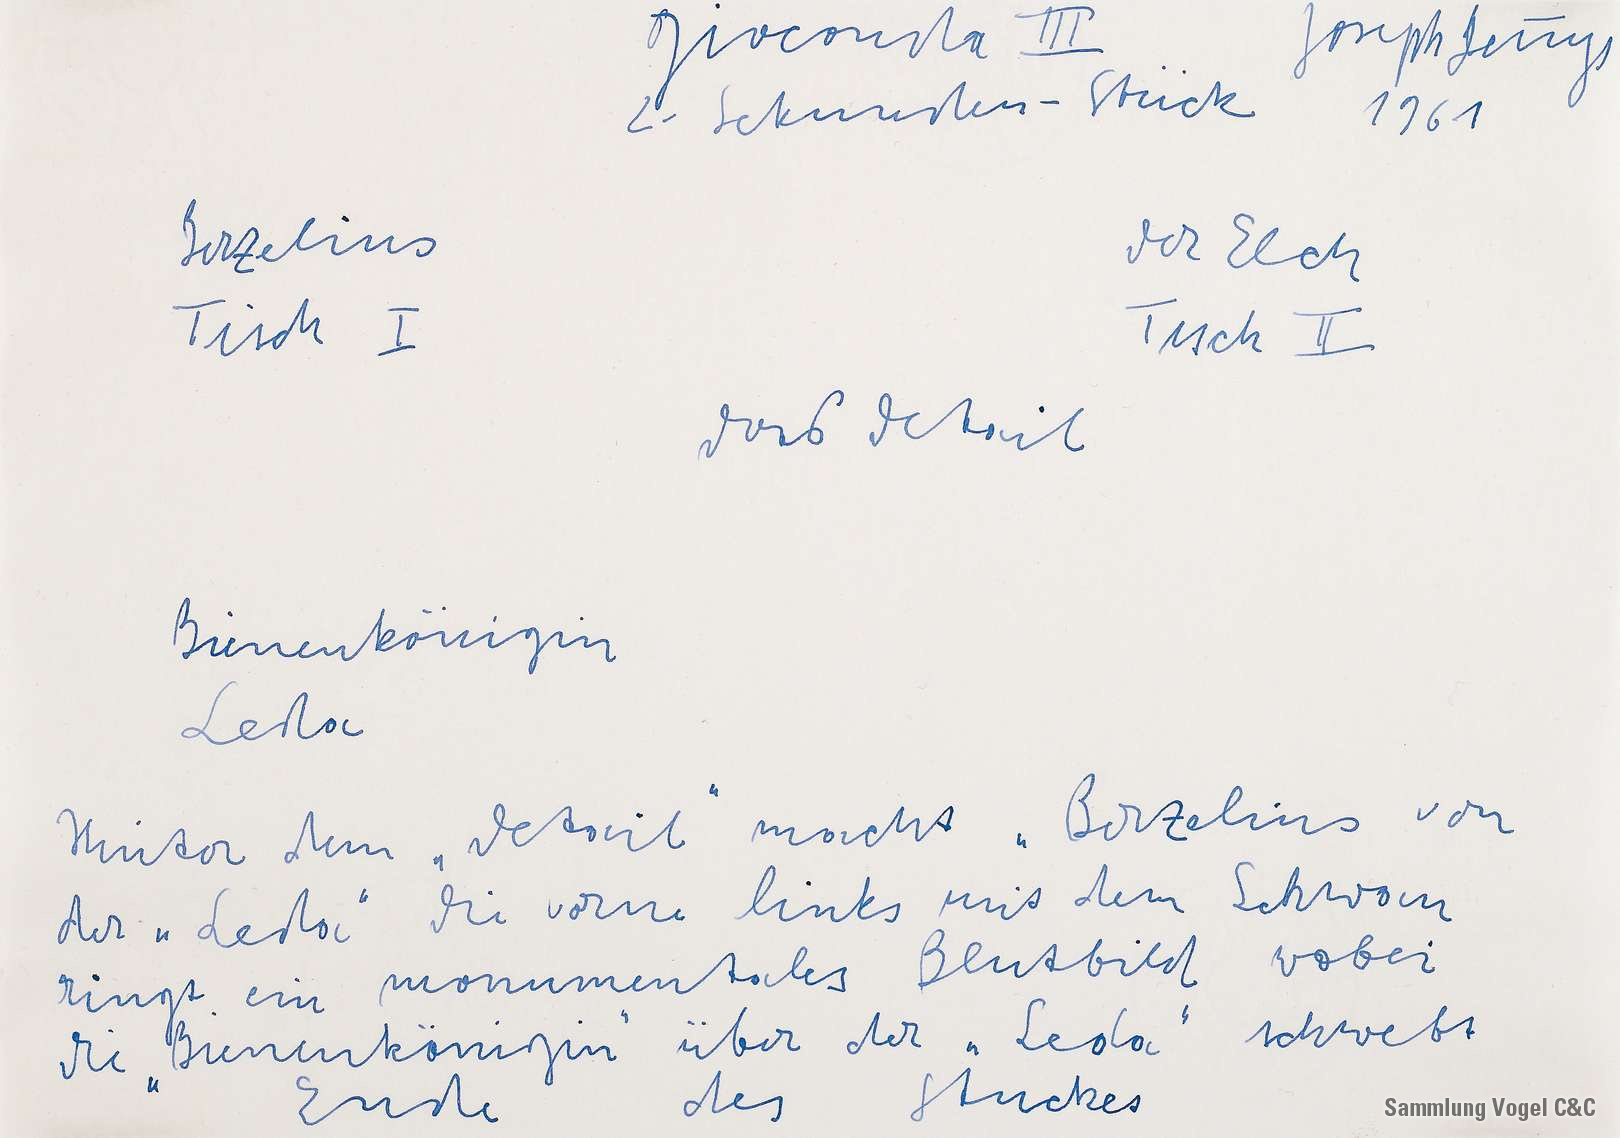 Gioconda III Joseph Beuys
2-Sekunden-Stück 1961
Berzelius der Elch
Tisch I Tisch II
das Detail
Bienenkönigin
Leda
Hinter dem „Detail“ macht „Berzelius von
der „Leda“ die vorne links mit dem Schwan
ringt ein monumentales Blutbild wobei
die „Bienenkönigin“ über der „Leda“ schwebt
Ende des Stuckes
Sammlung Vogel C&C